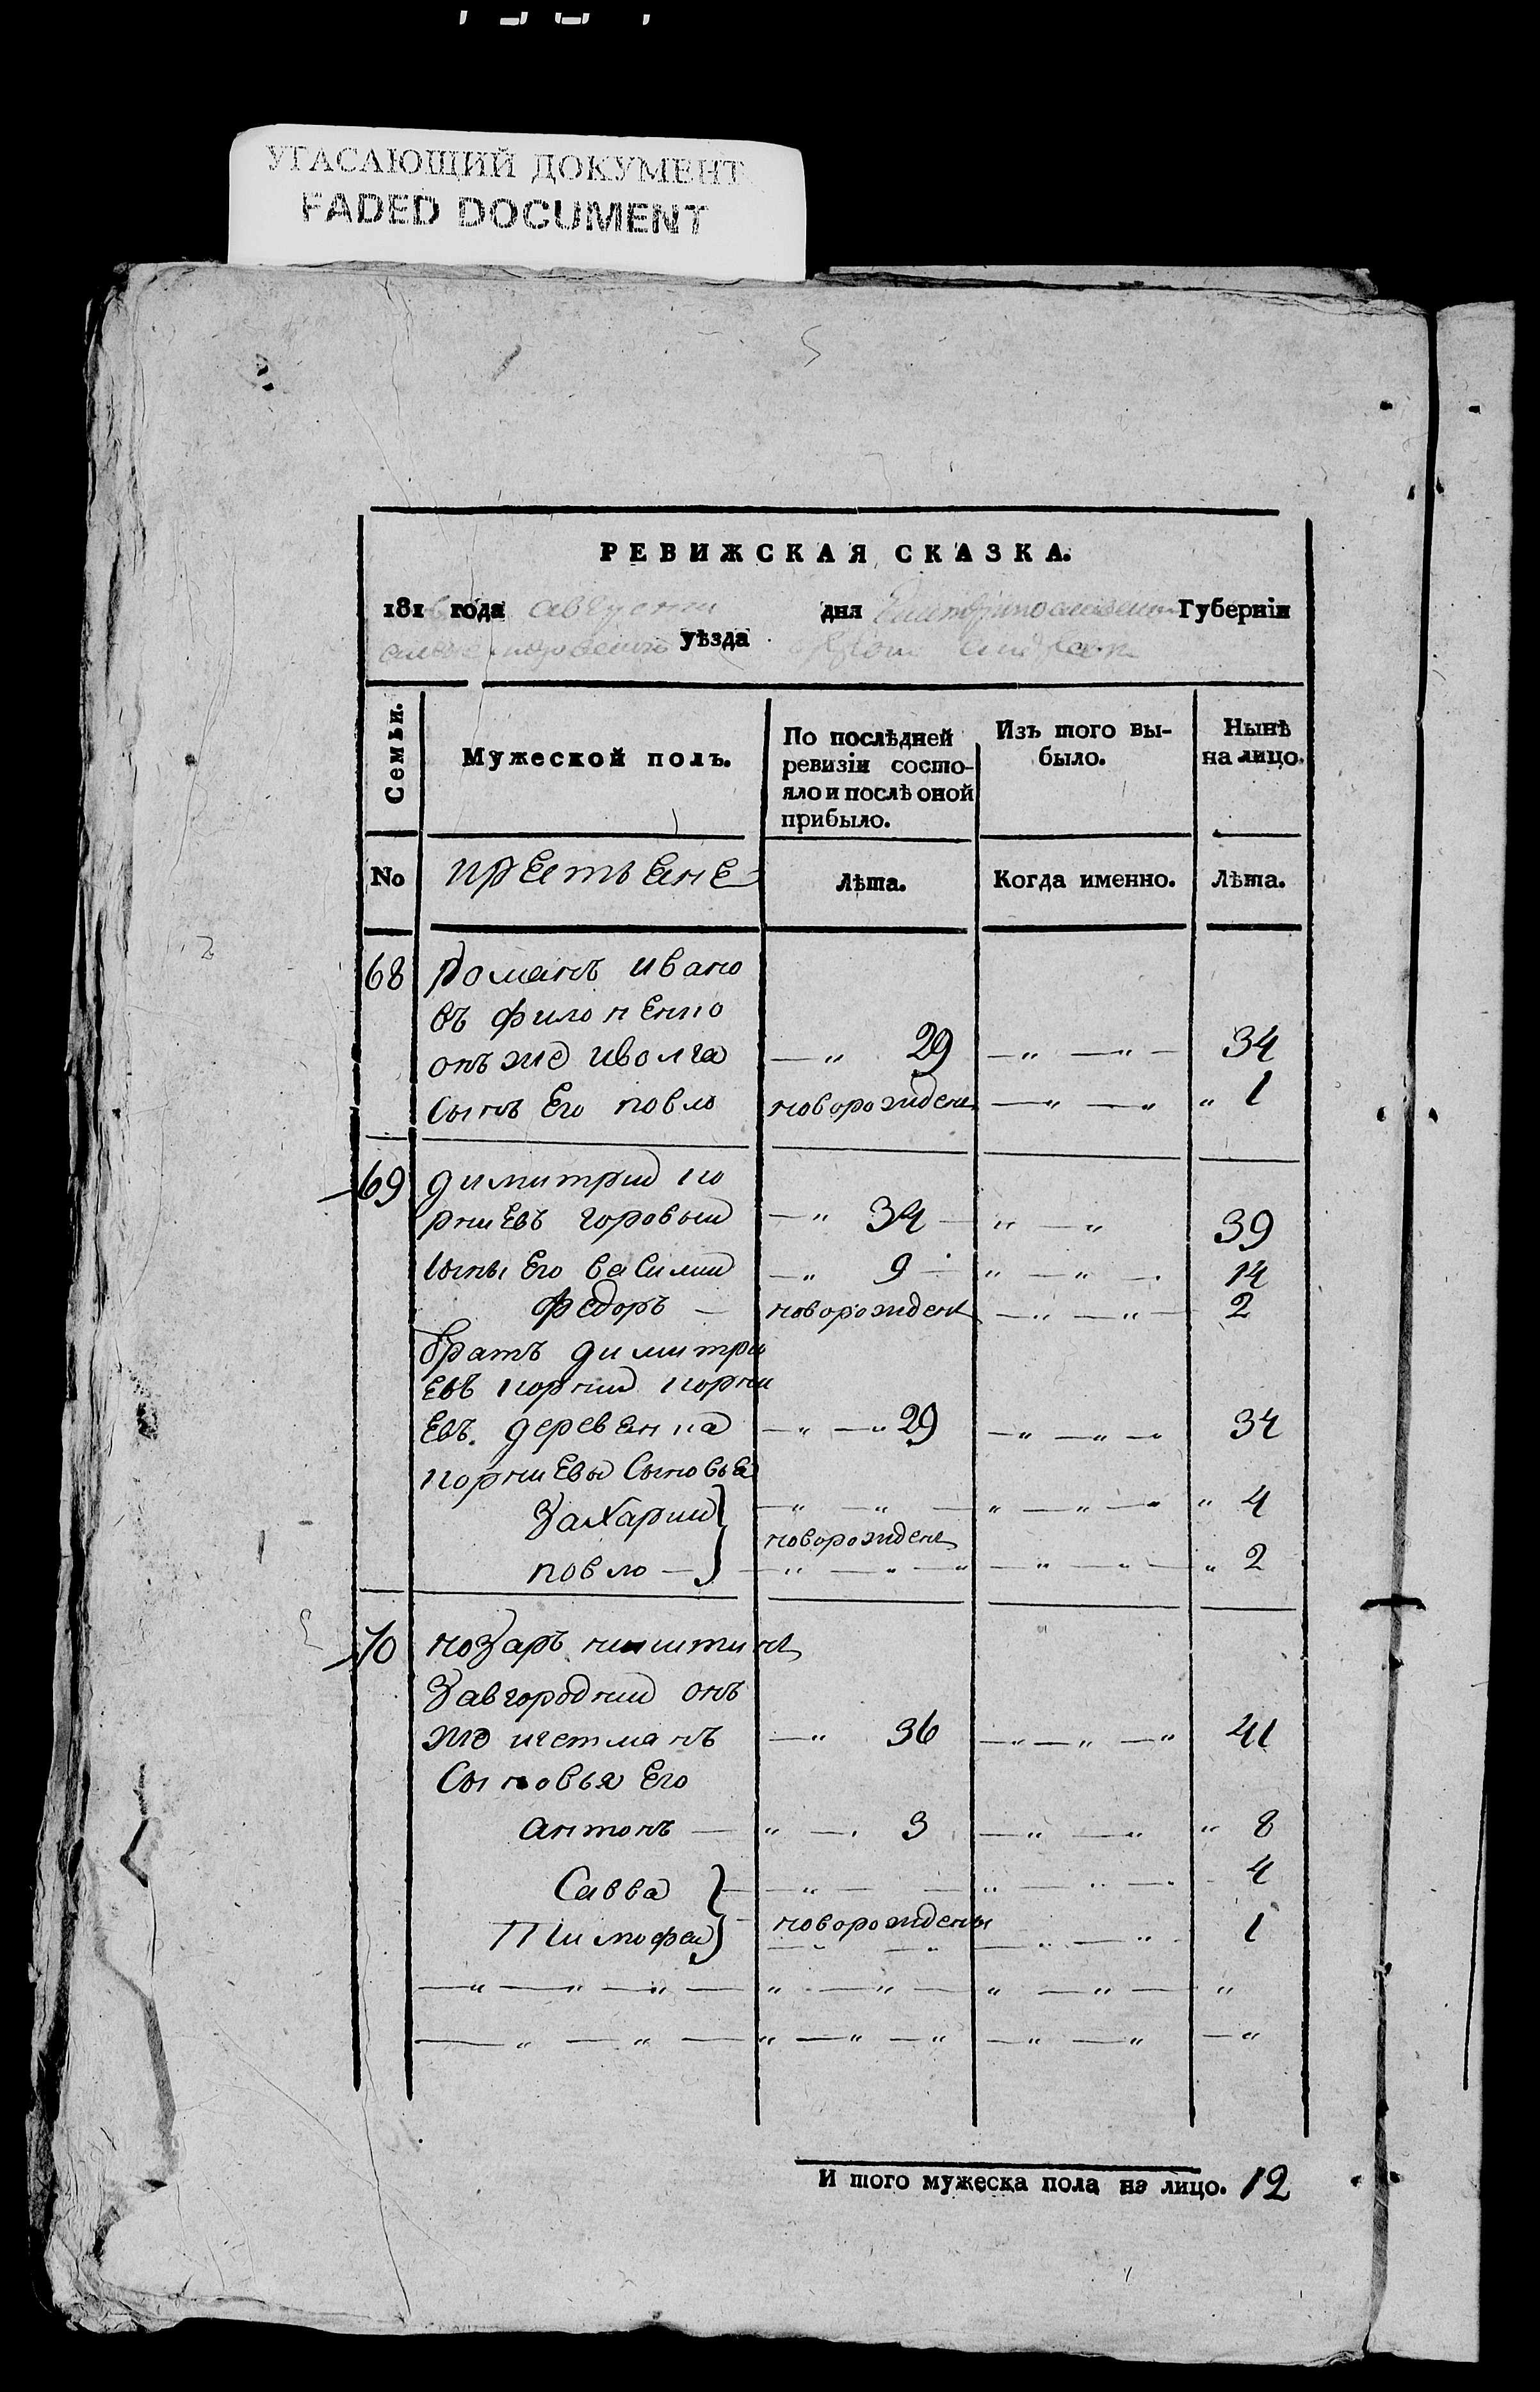 УГАСАЮЩИЙ ДОКУМЕНТ
FADED DOCUMENT
РЕВИЖСКАЯ СКАЗКА.
181 года августа дня Екатеринославской Губерніи
уѣзда
Семьи.
Мужеской полъ.
По послѣдней ревизіи состояло и послѣ оной прибыло.
Изъ того выбыло.
Нынѣ на лицо.
No крестьяне Лѣта. Когда именно. Лѣта.
68 Романъ ивано
въ филоненко
онъ же иволга —„ 29 —„ —„ — 34
Сынъ Его повло новорожденъ —„ —„ „ 1
69 димитрий ко
рниевъ горовый —„ 34 — „ —„ 39
Сыны Его василий —„ 9 — „ —„ —. 14
федоръ — новорожденъ —„ —„ — 2
братъ димитри
евъ корний корни
евъ деревянка —„ —„ 29 —„ —„ — 34
корниевы Сыновья
Захарий —„ —„ — „ —„ —„ „ 4
новорожденны
повло — —„ —„ —„ —„ —„ — „ 2
70 назаръ никитинъ
Завгородний онъ
же гетманъ —„ 36 —„ —„ —„ 41
Сыновья Его
антонъ — „ —. 3 —„ —„ „ 8
Савва —„ — — „ —„ —. 4
Тимофей новорожденны —„ —„ 1
—„ —„ —„ — „ —„ — „ —„ — „
—„ —„ — „ —„ —„ —„ —„ —„
И того мужеска пола на лицо. 12